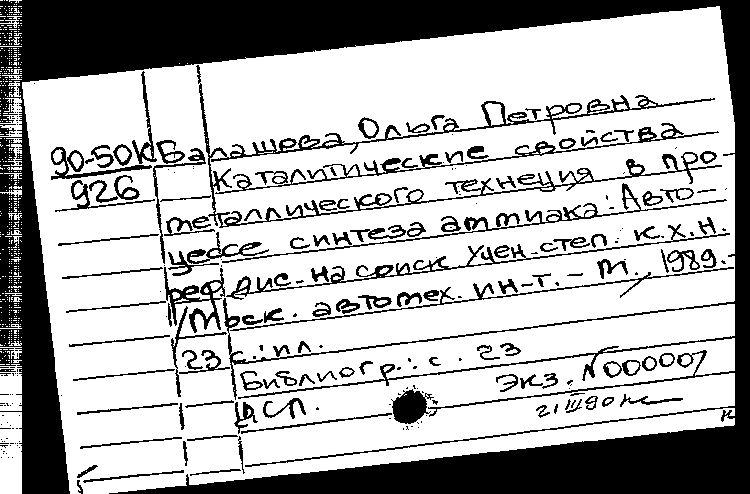 90-50К Балашова, Ольга Петровна
926 Каталитические свойства
металлического технеция в про-
цессе синтеза аммиака: Авто-
реф дис. на соиск учен. степ. к.х.н.
/Моск. автомех. ин-т. - М., 1989. -
23 с.: ил.
Библиогр.: с. 23
ДСП. Экз. N000007
21 III 90